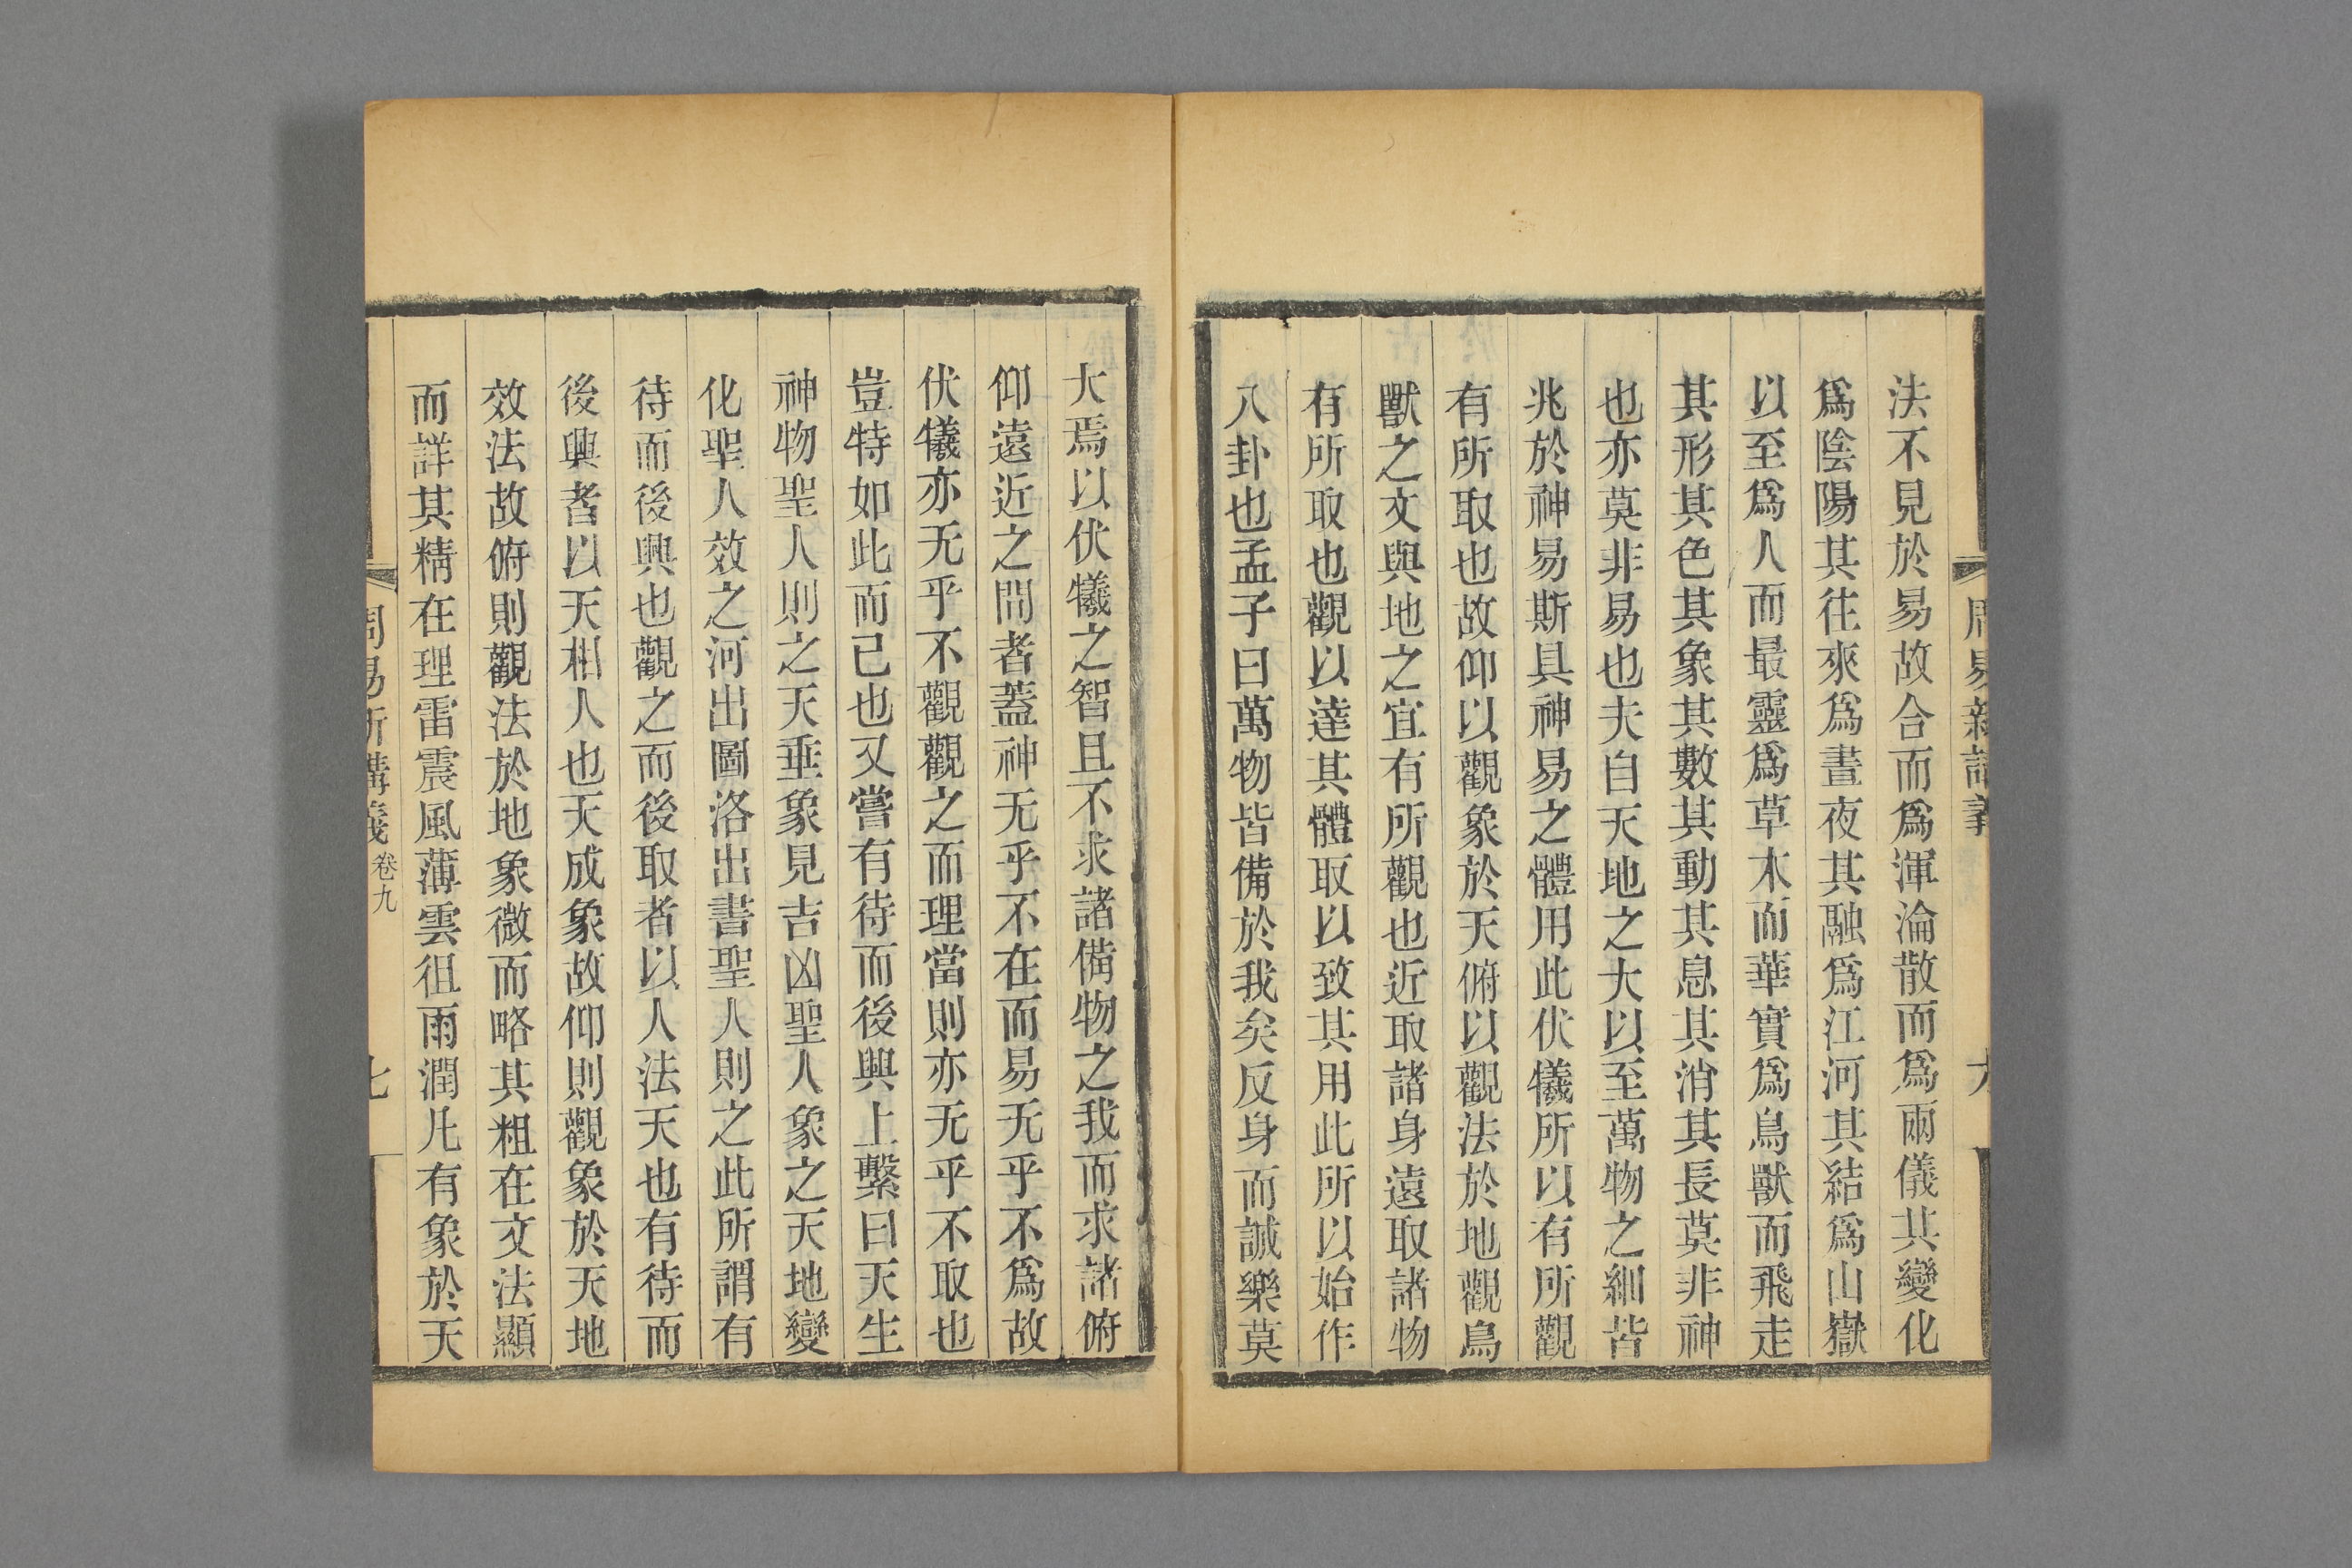 法不見於易故合而爲渾淪散而爲兩儀其變化
爲陰陽其往來爲晝夜其融爲江河其結爲山嶽
以至爲人而最靈爲草木而華實爲鳥獸而飛走
其形其色其象其數其動其息其消其長莫非神
也亦莫非易也夫自天地之大以至萬物之細皆
兆於神易斯具神易之體用此伏犧所以有所觀
有所取也故仰以觀象於天俯以觀法於地觀鳥
獸之文與地之宜有所觀也近取諸身遠取諸物
有所取也觀以達其體取以致其用此所以始作
八卦也孟子曰萬物皆備於我矣反身而誠樂莫
大焉以伏犧之智且不求諸備物之我而求諸俯
仰遠近之間者蓋神无乎不在而易无乎不爲故
伏犧亦无乎不觀觀之而理當則亦无乎不取也
豈特如此而已也又嘗有待而後興上繫曰天生
神物聖人則之天垂象見吉凶聖人象之天地變
化聖人效之河出圖洛出書聖人則之此所謂有
待而後興也觀之而後取者以人法天也有待而
後興者以天相人也天成象故仰則觀象於天地
效法故俯則觀法於地象微而略其粗在文法顯
而詳其精在理雷震風薄雲徂雨潤凡有象於天
周易新講義 卷九 七